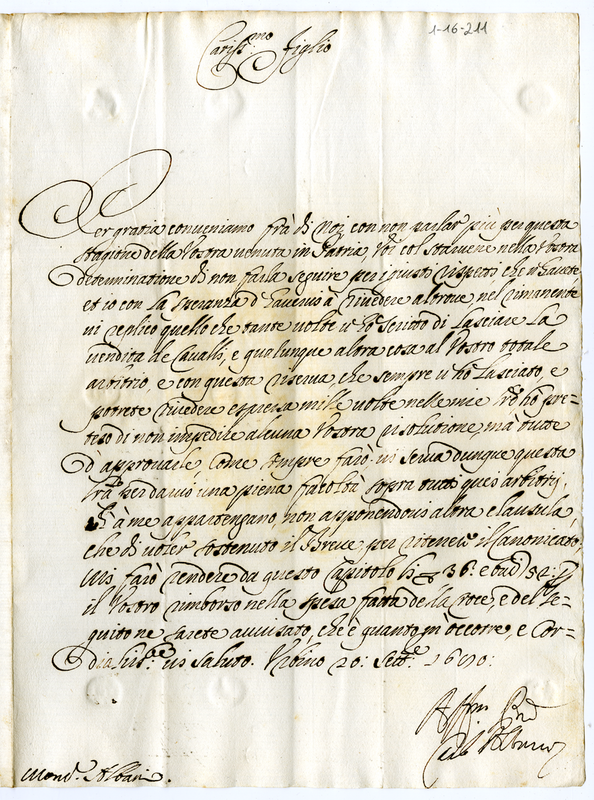 1-16-211
Cariss.mo figlio
Per gratia conveniamo frà di Noi con non parlar più per questa
stagione della Vostra venuta in Patria, Voi col starvene nella Vostra
determinatione di non farla seguire per i giusti rispetti che n'havete
et io con la speranza d'havervi à rivedere altrove, nel rimanente
vi replico quello che tante volte v'hò scritto di lasciare la
vendita de Cavalli, e qualunque altra cosa al Vostro totale
arbitrio, e con questa riserva, che sempre vi hò lasciato, e
potrete rivedere espressa mille volte nelle mie hò pre=
teso di non impedire alcuna Vostra risolutione, mà tutte
d'approvarle come sempre farò. vi serva dunque questa
per darvi una piena facoltà sopra tutti quei arbitrij,
ch'à me appartengano, non apponendovi altra clausula,
che di voler sostenuto il Breve, per ritenere il Canonicato,
Mi farò rendere da questo Capitolo li 36: e bai 52:
il Vostro rimborso nella spesa fatta della croce, e del se=
guito ne sarete avvisato, che è quanto m'occorre, e Cor=
dialm.te vi saluto. Urbino 20: Sett.e 1690:
Aff.mo
Carlo Albani
Mons.r Albani.